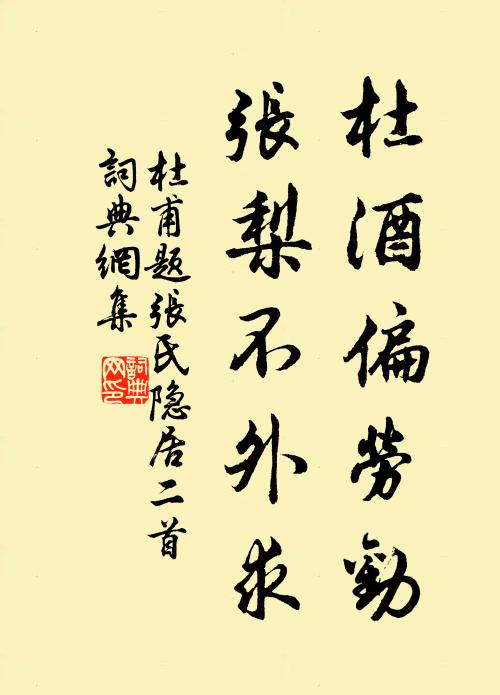 杜酒偏勞勸
張梨不外求
杜甫題張氏隐居二首
詞典網集
詞典
网印